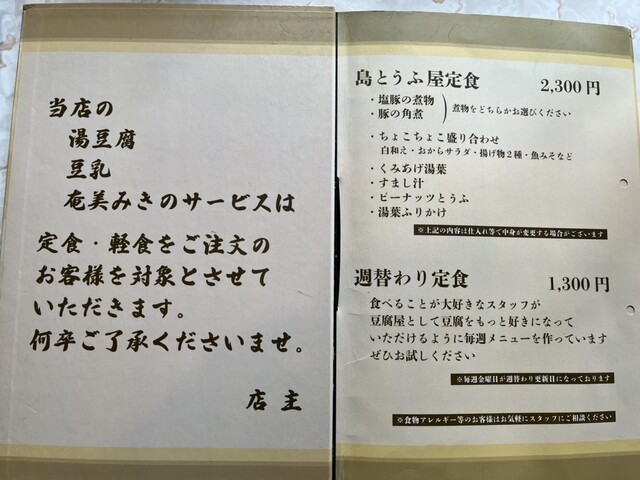 当店の
湯豆腐
豆乳
奄美みきのサービスは
定食・軽食をご注文の
お客様を対象とさせて
いただきます。
何卒ご了承くださいませ。
店主
島とうふ屋定食 2,300円
・塩豚の煮物
・豚の角煮
煮物をどちらかお選びください
・ちょこちょこ盛り合わせ
白和え・おからサラダ・揚げ物2種・魚みそなど
・くみあげ湯葉
・すまし汁
・ピーナッツとうふ
・湯葉ふりかけ
※上記の内容は仕入れ等で中身が変更する場合がございます
週替わり定食 1,300円
食べることが大好きなスタッフが
豆腐屋として豆腐をもっと好きになって
いただけるように毎週メニューを作っています
ぜひお試しください
※毎週金曜日が週替わり更新日になっております
※食物アレルギー等のお客様はお気軽にスタッフにご相談ください